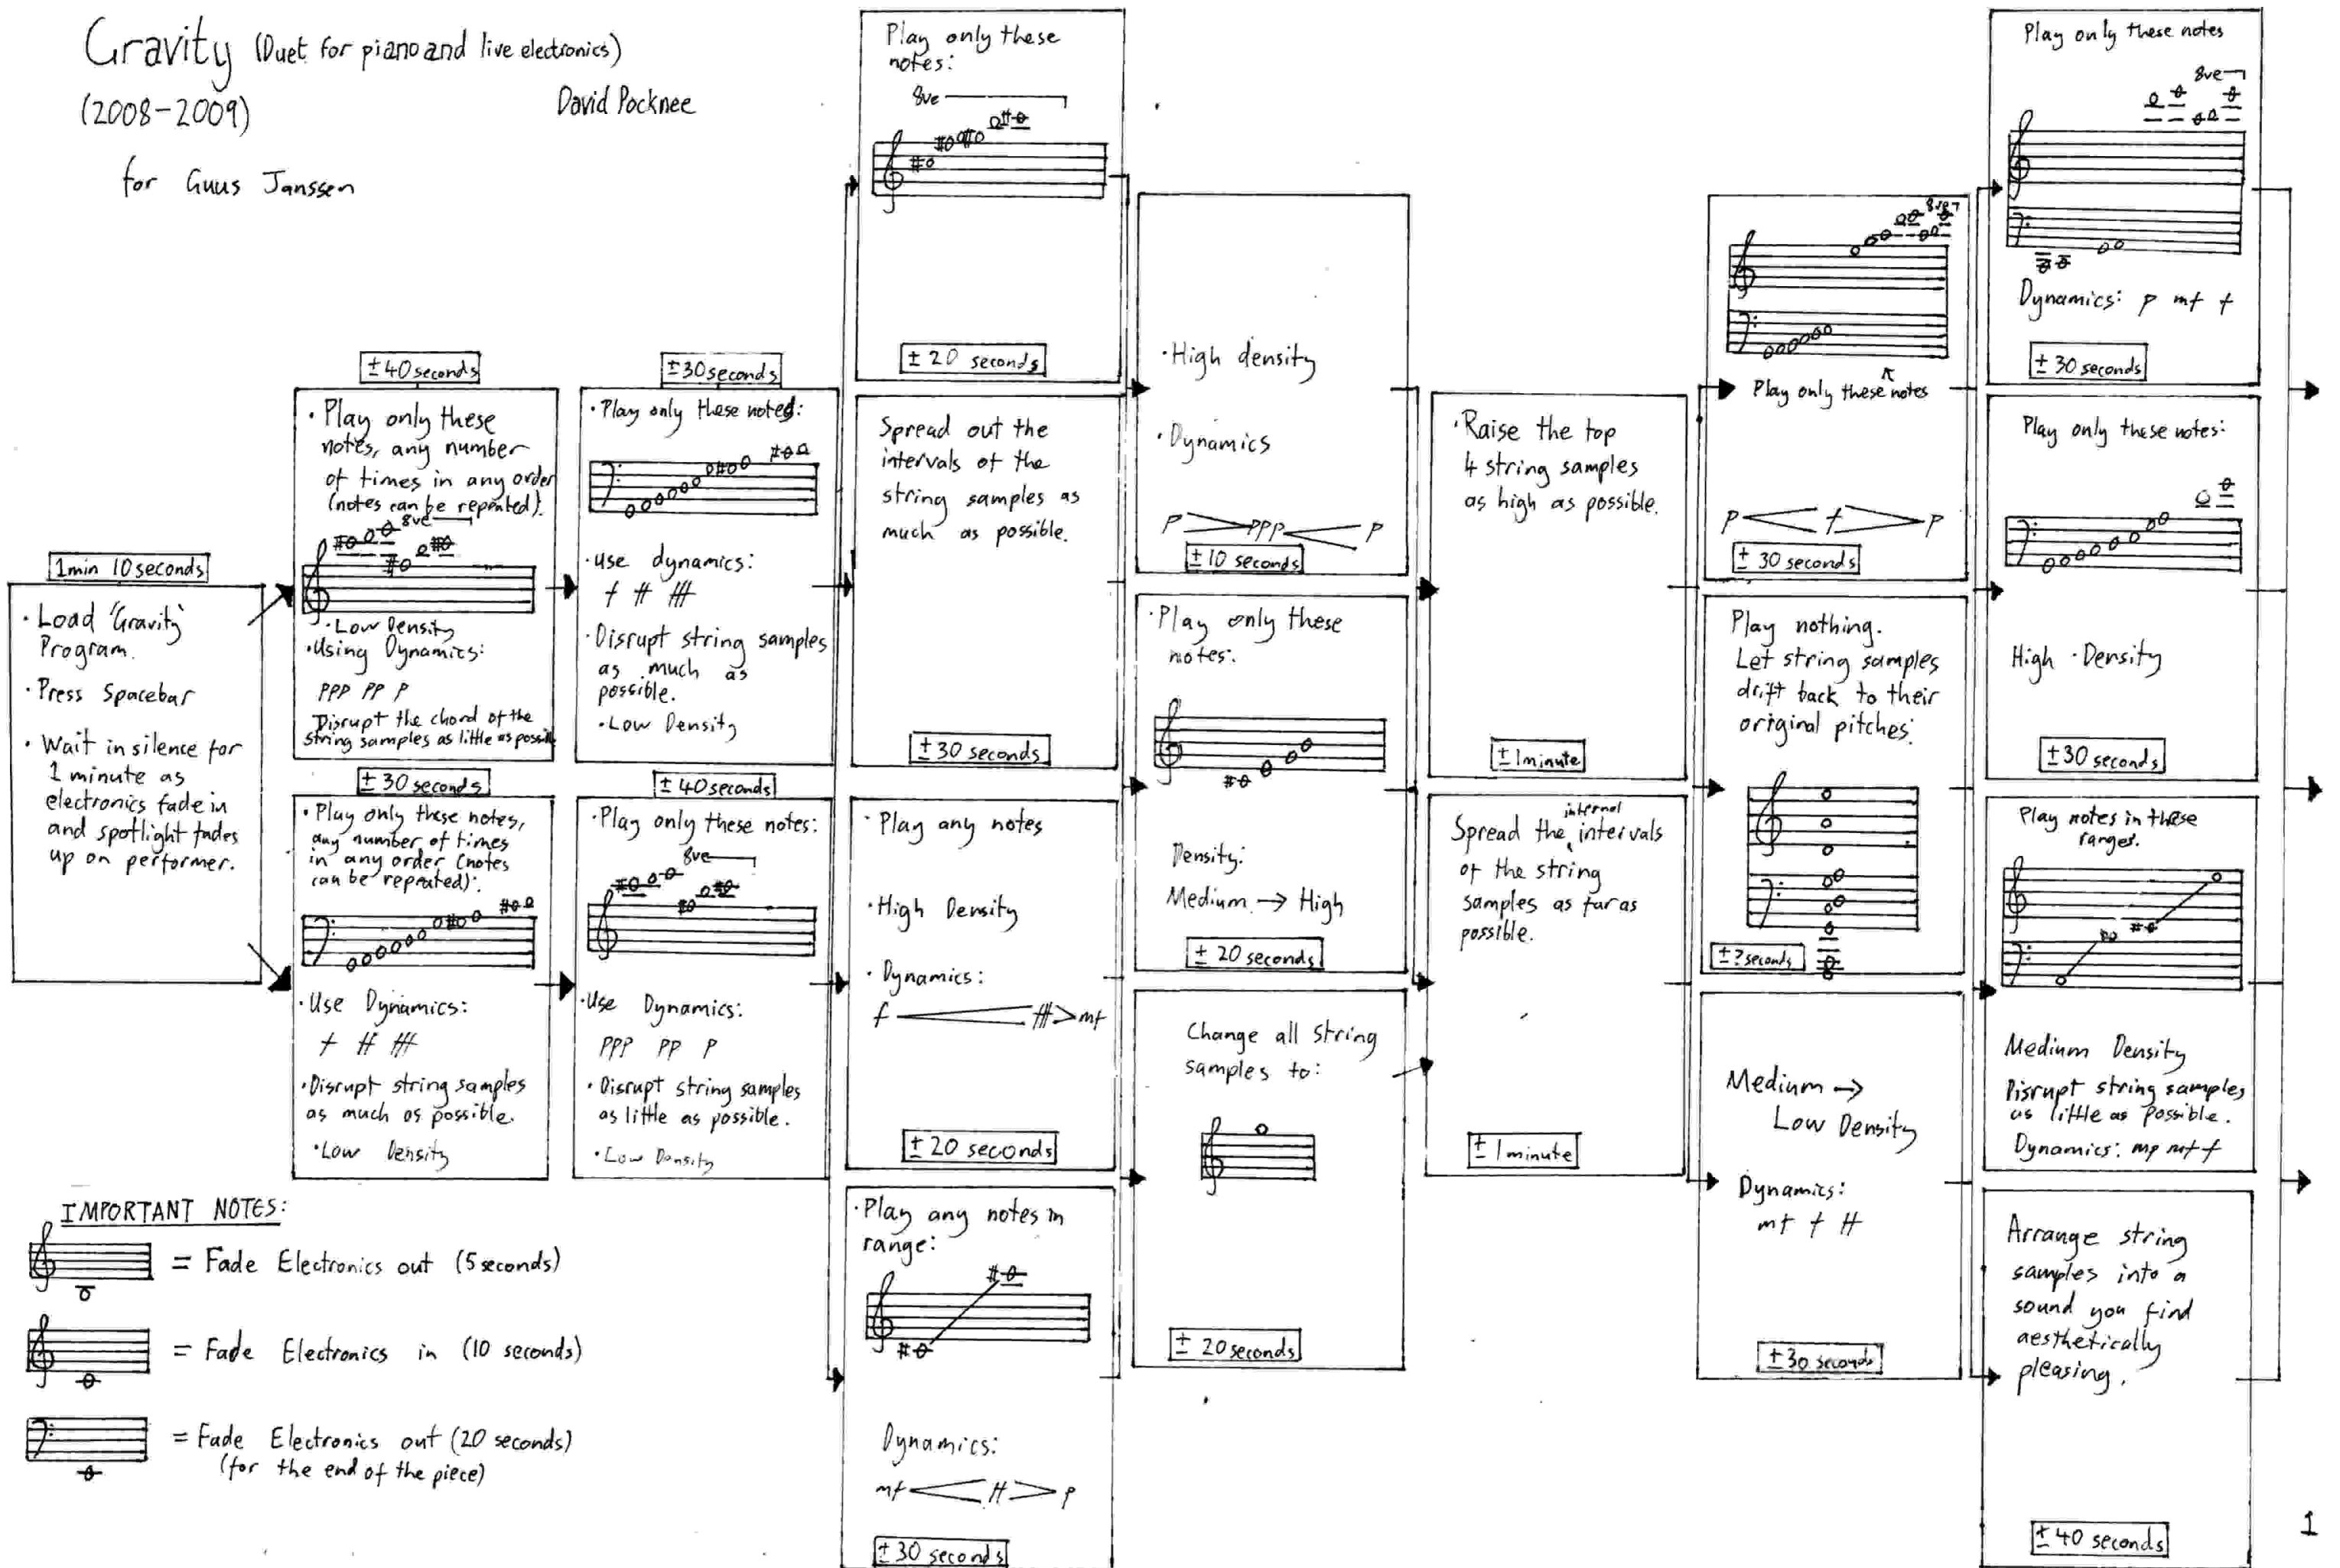 Gravity (Duet for piano and live electronics)
(2008-2009)
David Pocknee
for Guus Janssen
1min 10seconds
· Load 'Gravity'
Program.
· Press Spacebar
· Wait in silence for
1 minute as
electronics fade in
and spotlight fades
up on performer.
± 40 seconds
· Play only these
notes, any number
of times in any order
(notes can be repeated).
8ve
· Low Density
· Using Dynamics:
ppp pp p
Disrupt the chord of the
string samples as little as possible
± 30 seconds
· Play only these notes,
any number of times
in any order (notes
can be repeated):
· Use Dynamics:
f ff fff
· Disrupt string samples
as much as possible.
· Low Density
± 30 seconds
· Play only these notes:
· use dynamics:
f ff fff
· Disrupt string samples
as much as
possible.
· Low Density
± 40 seconds
· Play only these notes:
8ve
· Use Dynamics:
ppp pp p
· Disrupt string samples
as little as possible.
· Low Density
Play only these
notes:
8ve
± 20 seconds
Spread out the
intervals of the
string samples as
much as possible.
± 30 seconds
· Play any notes
· High Density
· Dynamics:
f fff mf
± 20 seconds
· Play any notes in
range:
Dynamics:
mf ff p
± 30 seconds
· High density
· Dynamics
p ppp p
± 10 seconds
· Play only these
notes:
Density:
Medium → High
± 20 seconds
Change all string
samples to:
± 20 seconds
· Raise the top
4 string samples
as high as possible.
± 1 minute
internal
Spread the intervals
of the string
samples as far as
possible.
± 1 minute
8ve
Play only these notes
p f p
± 30 seconds
Play nothing.
Let string samples
drift back to their
original pitches:
± ? seconds
Medium →
Low Density
Dynamics:
mf f ff
± 30 seconds
Play only these notes
8ve
Dynamics: p mf f
± 30 seconds
Play only these notes:
High · Density
± 30 seconds
Play notes in these
ranges.
Medium Density
Disrupt string samples
as little as possible.
Dynamics: mp mf f
Arrange string
samples into a
sound you find
aesthetically
pleasing.
± 40 seconds
IMPORTANT NOTES:
= Fade Electronics out (5 seconds)
= Fade Electronics in (10 seconds)
= Fade Electronics out (20 seconds)
(for the end of the piece)
1